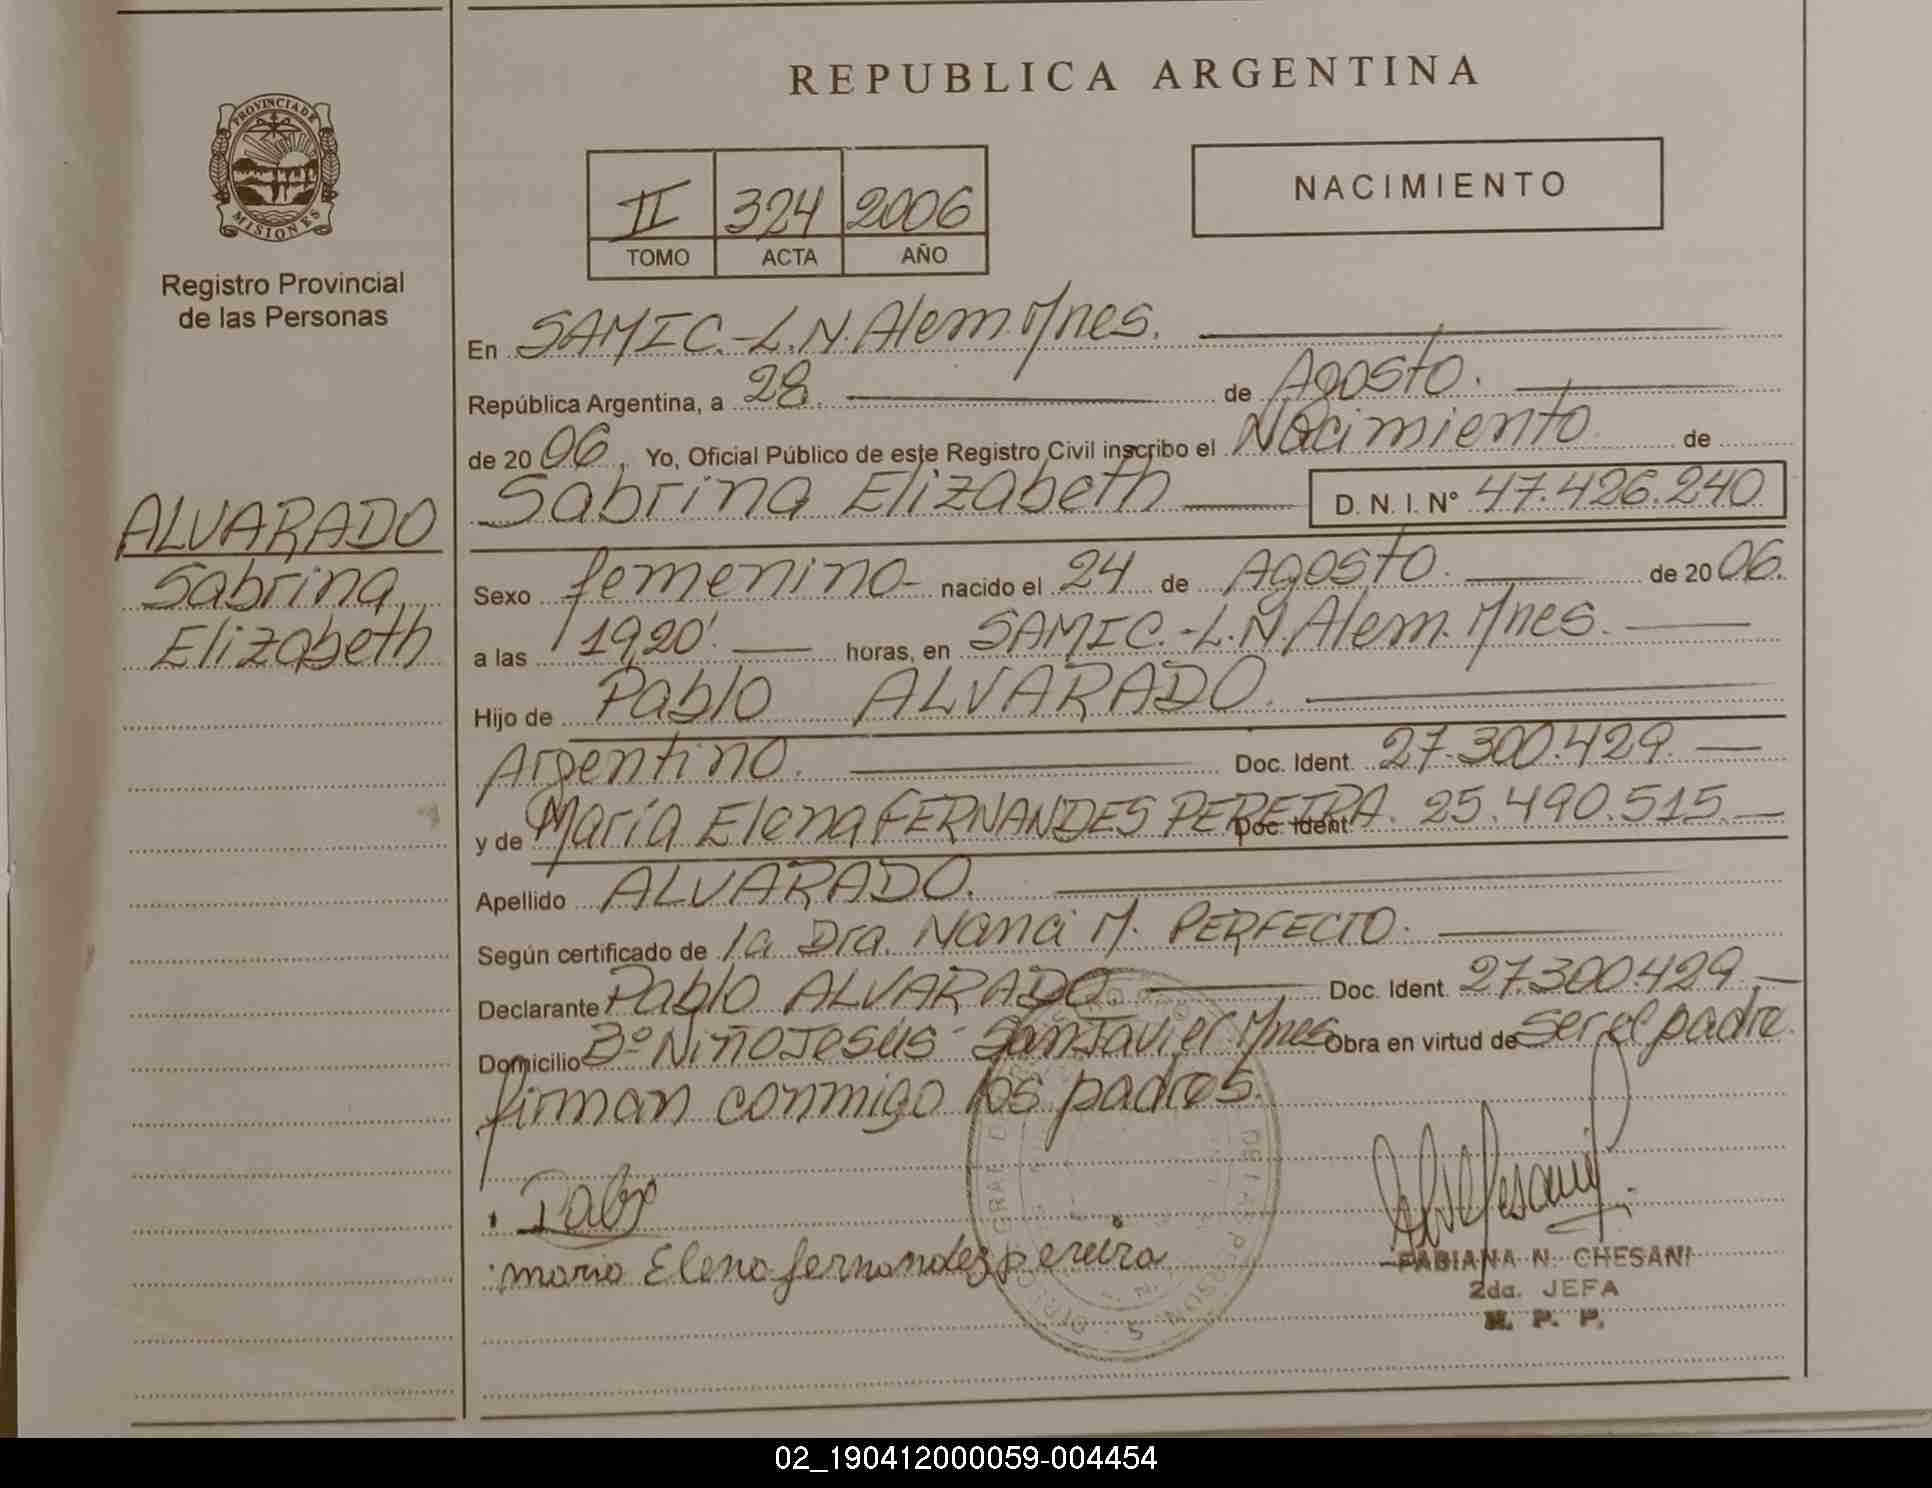 REPUBLICA ARGENTINA
PROVINCIA DE
MISIONES
Registro Provincial
de las Personas
II 324 2006
TOMO ACTA AÑO
NACIMIENTO
En SAMIC.-L.N.Alem.Mnes.
República Argentina, a 28. de Agosto.
de 2006, Yo, Oficial Público de este Registro Civil inscribo el Nacimiento de
Sabrina Elizabeth D. N. I. Nº 47.426.240
ALVARADO
Sabrina
Elizabeth
Sexo femenino- nacido el 24 de Agosto. de 2006.
a las 19,20'. horas, en SAMIC.-L.N.Alem.Mnes.
Hijo de Pablo ALVARADO.
Argentino. Doc. Ident. 27.300.429.
y de María Elena FERNANDES PEREIRA. Doc. Ident. 25.490.515.
Apellido ALVARADO.
Según certificado de la Dra. Nanci M. PERFECTO.
Declarante Pablo ALVARADO. Doc. Ident. 27.300.429.
Domicilio Bº Niño Jesús - San Javier Mnes Obra en virtud de ser el padre.
firman conmigo los padres.
Pablo
maria Elena fernandez pereira
FABIANA N. CHESANI
2da. JEFA
R. P. P.
02_190412000059-004454